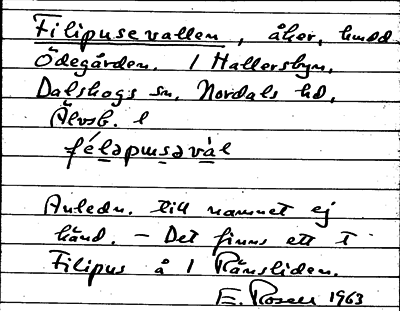 Filipusevallen, åker, hmdd
Ödegården. 1 Hallersbyn,
Dalskogs sn. Nordals hd,
Älvsb. l
féləpusəvàl
Anledn. till namnet ej
känd. – Det finns ett T
Filipus å 1 Rånsliden.
E. Rosell 1963